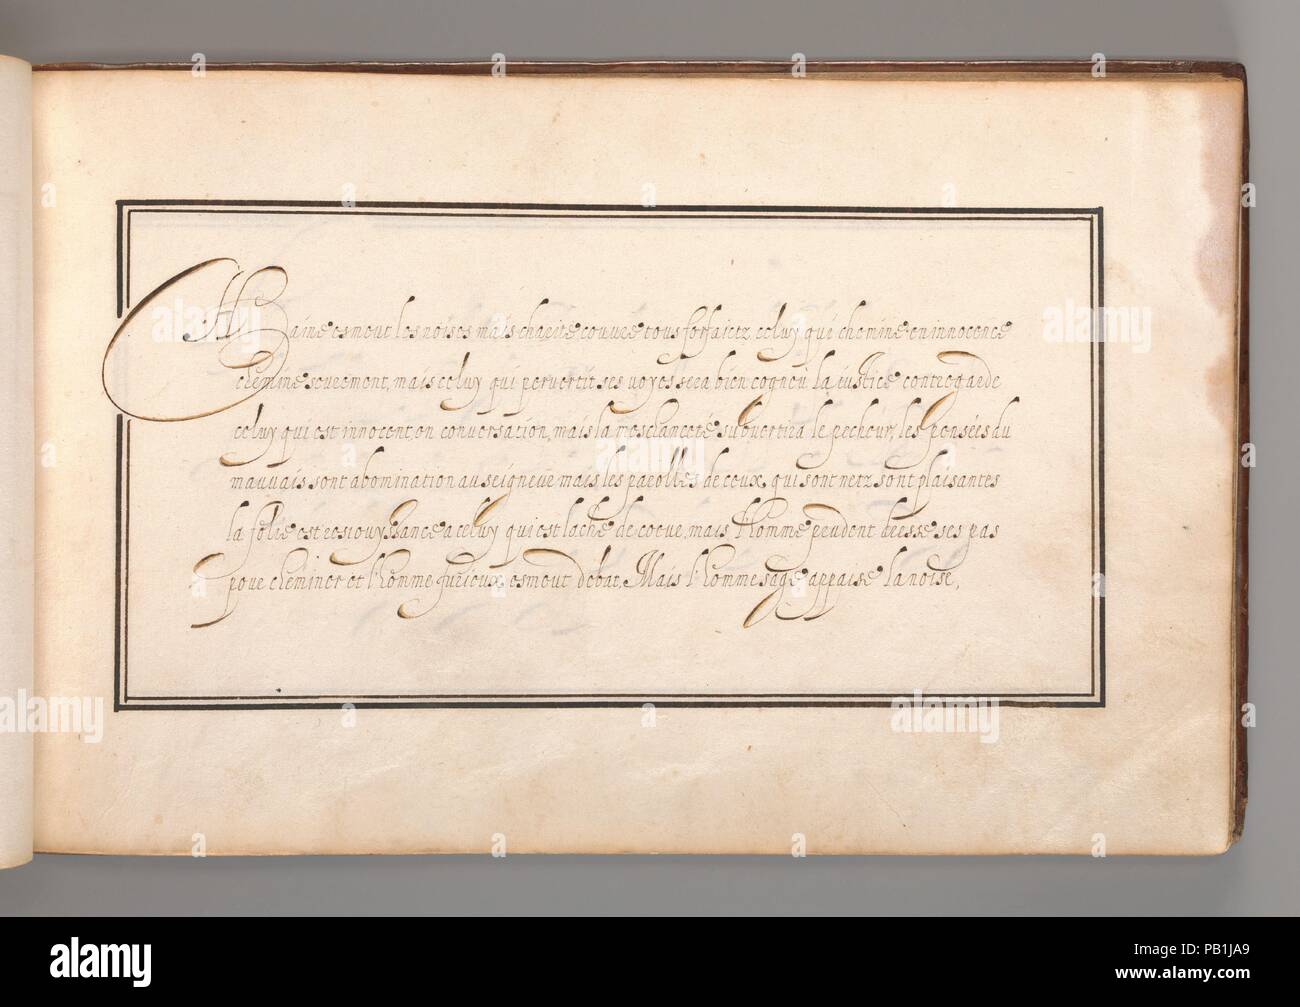 Haine esmeut les noises mais charité couvre tous forfaictz, celuy qui chemine en innocence
chemine seurement, mais celuy qui pervertit ses voyes sera bien cogneu. la iustice contregarde
celuy qui est innocent, en conversation, mais la mesclanceté subvertira le pecheur, les pensées du
mauvais sont abomination au seigneur mais les parolles de ceux, qui sont netz sont plaisantes
la folie est resiouyssance a celuy qui est lache de coeur, mais l'homme prudent dresse ses pas
pour cheminer et l'homme furieux, esmeut debat, Mais l'homme sage appaise la noise,
alamy
Image ID: PB1JA9
www.alamy.com